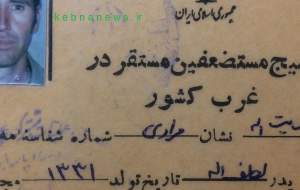 kebnanews.ir
جمهوری اسلامی ایران
بسیج مستضعفین مستقر در
غرب کشور
نشان مرادی شماره شناسنامه
پدر لطف اله تاریخ تولد ۱۳۳۱